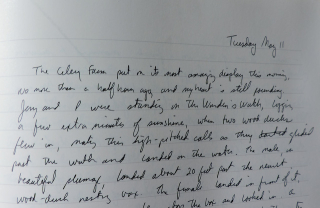 Tuesday May 11
The Celery Farm put on its most amazing display this morning,
no more than a half hour ago, and my heart is still pounding.
Jerry and I were standing on the Warden's Watch,
a few extra minutes of sunshine, when two wood ducks
flew in, making this high-pitched calls as they
past the watch and landed on the water. The male, in
beautiful plumage, landed about 20 feet past the newest
wood-duck nesting box. The female landed in front of it,
the box and looked in a